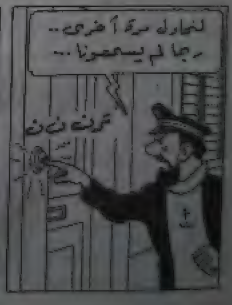 لنحاول مرة أخرى..
ربما لم يسمعونا...
ترن ن ن